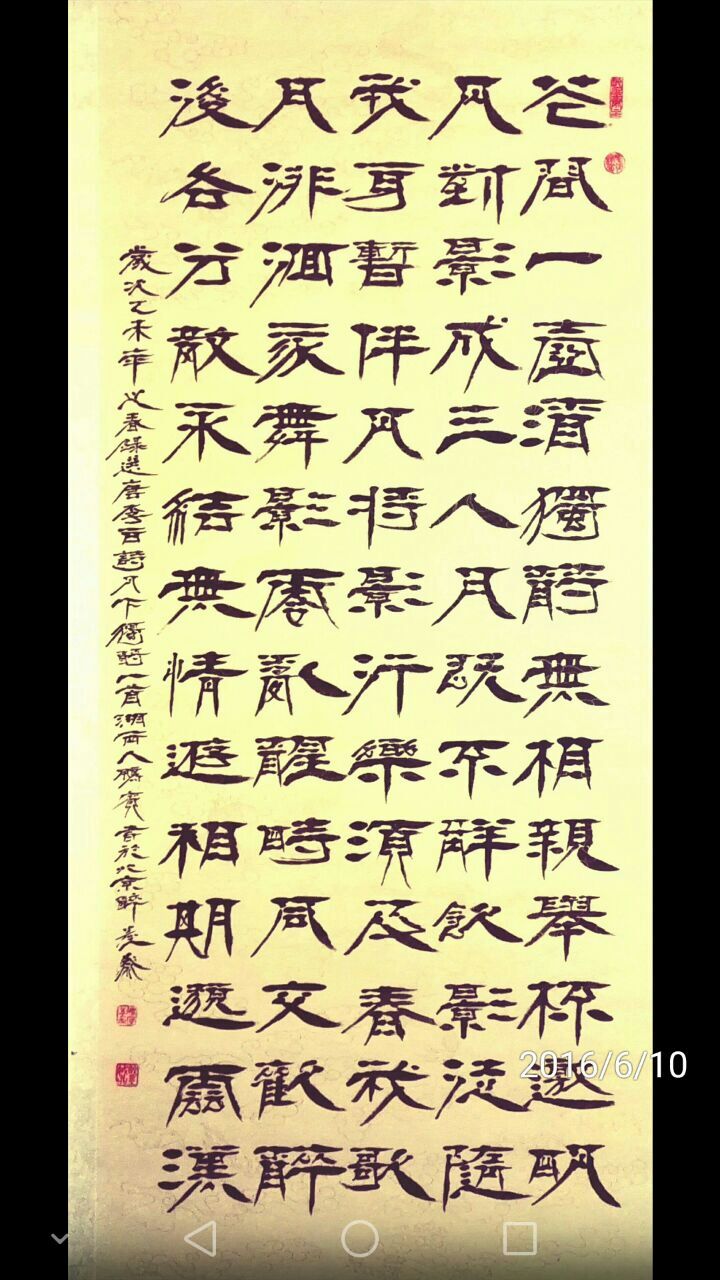 花間一壺酒獨酌無相親舉杯邀明
月對影成三人月既不解飲影徒隨
我身暫伴月將影行樂須及春我歌
月徘徊我舞影零亂醒時同交歡醉
後各分散永結無情遊相期邈雲漢
歲次乙未年之春錄選唐李白詩月下獨酌一首湖西人書於北京醉墨齋
2016/6/10